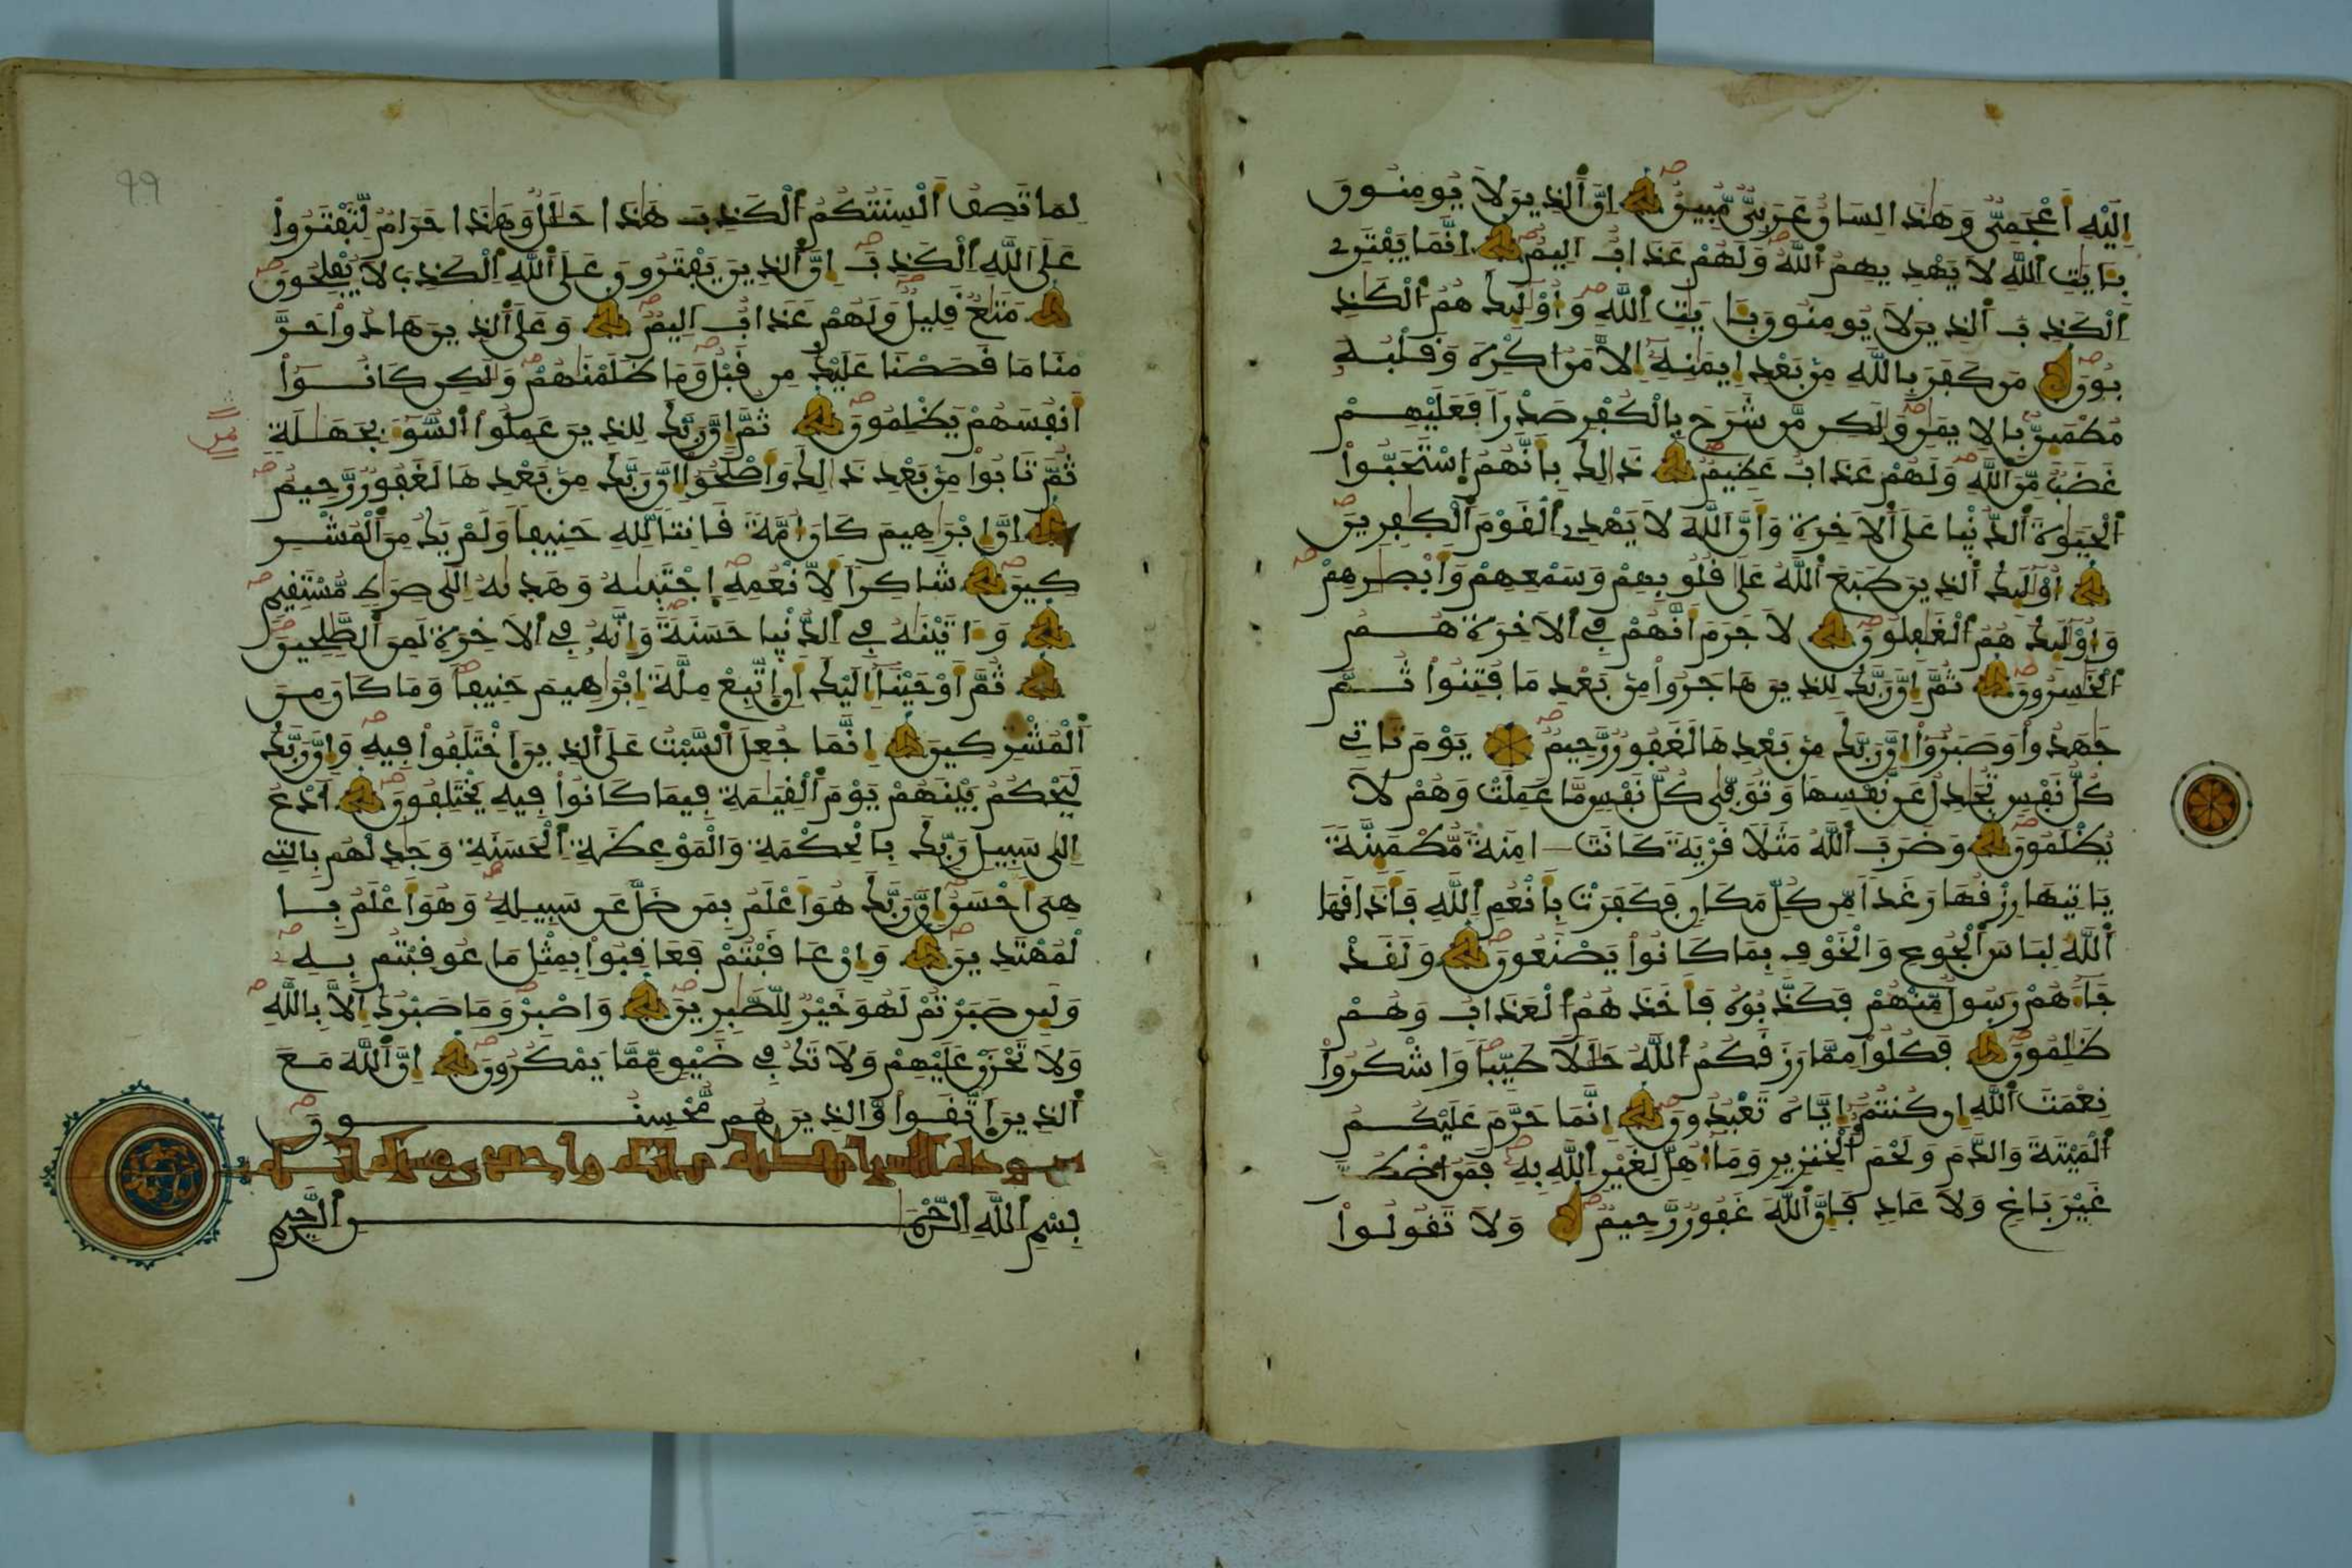 إِلَيْهِ أَعْجَمِيٌّ وَهَٰذَا لِسَانٌ عَرَبِيٌّ مُّبِينٌ إِنَّ ٱلذِينَ لَا يُومِنُونَ
بِـَٔايَٰتِ ٱللَّهِ لَا يَهْدِيهِمُ ٱللَّهُ وَلَهُمْ عَذَابٌ اَلِيمٌ اِنَّمَا يَفْتَرِے
اِ۬لْكَذِبَ ٱلذِينَ لَا يُومِنُونَ بِـَٔايَٰتِ اِ۬للَّهِ وَأُوْلَٰٓئِكَ هُمُ ٱلْكَٰذِ
بُونَ مَن كَفَرَ بِاللَّهِ مِنۢ بَعْدِ إِيمَٰنِهِۦٓ إِلَّا مَنُ ا۟كْرِهَ وَقَلْبُهُۥ
مُطْمَئِنٌّۢ بِالِايمَٰنِ وَلَٰكِن مَّن شَرَحَ بِالْكُفْرِ صَدْراً فَعَلَيْهِمْ
غَضَبٌ مِّنَ ٱللَّهِ وَلَهُمْ عَذَابٌ عَظِيمٌ ذَٰلِكَ بِأَنَّهُمُ اُ۪سْتَحَبُّوا۟
اُ۬لْحَيَوٰةَ ٱلدُّنْيا عَلَى ٱلَاخِرَةِ وَأَنَّ ٱللَّهَ لَا يَهْدِے اِ۬لْقَوْمَ ٱلْكَٰفِرِينَ
أُوْلَٰٓئِكَ ٱلذِينَ طَبَعَ ٱللَّهُ عَلَىٰ قُلُوبِهِمْ وَسَمْعِهِمْ وَأَبْصَٰرِهِمْ
وَأُوْلَٰٓئِكَ هُمُ ٱلْغَٰفِلُونَ لَا جَرَمَ أَنَّهُمْ فِے اِ۬لَاخِرَةِ هُمُ
ٱلْخَٰسِرُونَ ثُمَّ إِنَّ رَبَّكَ لِلذِينَ هَاجَرُوا۟ مِنۢ بَعْدِ مَا فُتِنُوا۟ ثُمَّ
جَٰهَدُوا۟ وَصَبَرُوٓا۟ إِنَّ رَبَّكَ مِنۢ بَعْدِهَا لَغَفُورٌ رَّحِيمٌ يَوْمَ تَاتِے
كُلُّ نَفْسٍ تُجَٰدِلُ عَن نَّفْسِهَا وَتُوَفَّىٰ كُلُّ نَفْسٍ مَّا عَمِلَتْ وَهُمْ لَا
يُظْلَمُونَ وَضَرَبَ ٱللَّهُ مَثَلًا قَرْيَةً كَانَتَ اٰمِنَةً مُّطْمَئِنَّةً
يَاتِيهَا رِزْقُهَا رَغَداً مِّن كُلِّ مَكَانٍ فَكَفَرَتْ بِأَنْعُمِ اِ۬للَّهِ فَأَذَٰقَهَا
ٱللَّهُ لِبَاسَ ٱلْجُوعِ وَالْخَوْفِ بِمَا كَانُوا۟ يَصْنَعُونَ وَلَقَدْ
جَآءَهُمْ رَسُولٌ مِّنْهُمْ فَكَذَّبُوهُ فَأَخَذَهُمُ ٱلْعَذَابُ وَهُمْ
ظَٰلِمُونَ فَكُلُوا۟ مِمَّا رَزَقَكُمُ ٱللَّهُ حَلَٰلًا طَيِّباً وَاشْكُرُوا۟
نِعْمَتَ ٱللَّهِ إِن كُنتُمُۥٓ إِيَّاهُ تَعْبُدُونَ إِنَّمَا حَرَّمَ عَلَيْكُمُ
ٱلْمَيْتَةَ وَالدَّمَ وَلَحْمَ ٱلْخِنزِيرِ وَمَآ أُهِلَّ لِغَيْرِ اِ۬للَّهِ بِهِۦ فَمَنُ ا۟ضْطُرَّ
غَيْرَ بَاغٍ وَلَا عَادٍ فَإِنَّ ٱللَّهَ غَفُورٌ رَّحِيمٌ وَلَا تَقُولُوا۟
لِمَا تَصِفُ أَلْسِنَتُكُمُ ٱلْكَذِبَ هَٰذَا حَلَٰلٌ وَهَٰذَا حَرَامٌ لِّتَفْتَرُوا۟
عَلَى ٱللَّهِ اِ۬لْكَذِبَ إِنَّ ٱلذِينَ يَفْتَرُونَ عَلَى ٱللَّهِ اِ۬لْكَذِبَ لَا يُفْلِحُونَ
مَتَٰعٌ قَلِيلٌ وَلَهُمْ عَذَابٌ اَلِيمٌ وَعَلَى ٱلذِينَ هَادُوا۟ حَرَّ
مْنَا مَا قَصَصْنَا عَلَيْكَ مِن قَبْلُ وَمَا ظَلَمْنَٰهُمْ وَلَٰكِن كَانُوٓا۟
أَنفُسَهُمْ يَظْلِمُونَ ثُمَّ إِنَّ رَبَّكَ لِلذِينَ عَمِلُوا۟ ٱلسُّوٓءَ بِجَهَٰلَةٍ
ثُمَّ تَابُوا۟ مِنۢ بَعْدِ ذَٰلِكَ وَأَصْلَحُوٓا۟ إِنَّ رَبَّكَ مِنۢ بَعْدِهَا لَغَفُورٌ رَّحِيمٌ
اِنَّ إِبْرَٰهِيمَ كَانَ أُمَّةً قَانِتاً لِّلهِ حَنِيفاً وَلَمْ يَكُ مِنَ ٱلْمُشْرِ
كِينَ شَاكِراً لِّأَنْعُمِهِ اِ۪جْتَبَىٰهُ وَهَدَىٰهُ إِلَىٰ صِرَٰطٍ مُّسْتَقِيمٍ
وَءَاتَيْنَٰهُ فِے اِ۬لدُّنْيا حَسَنَةً وَإِنَّهُۥ فِے اِ۬لَاخِرَةِ لَمِنَ ٱلصَّٰلِحِينَ
ثُمَّ أَوْحَيْنَآ إِلَيْكَ أَنِ اِ۪تَّبِعْ مِلَّةَ إِبْرَٰهِيمَ حَنِيفاً وَمَا كَانَ مِنَ
ٱلْمُشْرِكِينَ إِنَّمَا جُعِلَ ٱلسَّبْتُ عَلَى ٱلذِينَ ٱخْتَلَفُوا۟ فِيهِ وَإِنَّ رَبَّكَ
لَيَحْكُمُ بَيْنَهُمْ يَوْمَ ٱلْقِيَٰمَةِ فِيمَا كَانُوا۟ فِيهِ يَخْتَلِفُونَ اَ۟دْعُ
إِلَىٰ سَبِيلِ رَبِّكَ بِالْحِكْمَةِ وَالْمَوْعِظَةِ اِ۬لْحَسَنَةِ وَجَٰدِلْهُم بِالتِے
هِيَ أَحْسَنُ إِنَّ رَبَّكَ هُوَ أَعْلَمُ بِمَن ضَلَّ عَن سَبِيلِهِۦ وَهُوَ أَعْلَمُ بِا
لْمُهْتَدِينَ وَإِنْ عَاقَبْتُمْ فَعَاقِبُوا۟ بِمِثْلِ مَا عُوقِبْتُم بِهِۦ
وَلَئِن صَبَرْتُمْ لَهُوَ خَيْرٌ لِّلصَّٰبِرِينَ وَاصْبِرْ وَمَا صَبْرُكَ إِلَّا بِاللَّهِ
وَلَا تَحْزَنْ عَلَيْهِمْ وَلَا تَكُ فِے ضَيْقٍ مِّمَّا يَمْكُرُونَ إِنَّ ٱللَّهَ مَعَ
ٱلذِينَ ٱتَّقَوا۟ وَّالذِينَ هُم مُّحْسِنُونَ
بِسْمِ ٱللَّهِ ٱلرَّحْمَٰنِ ٱلرَّحِيمِ